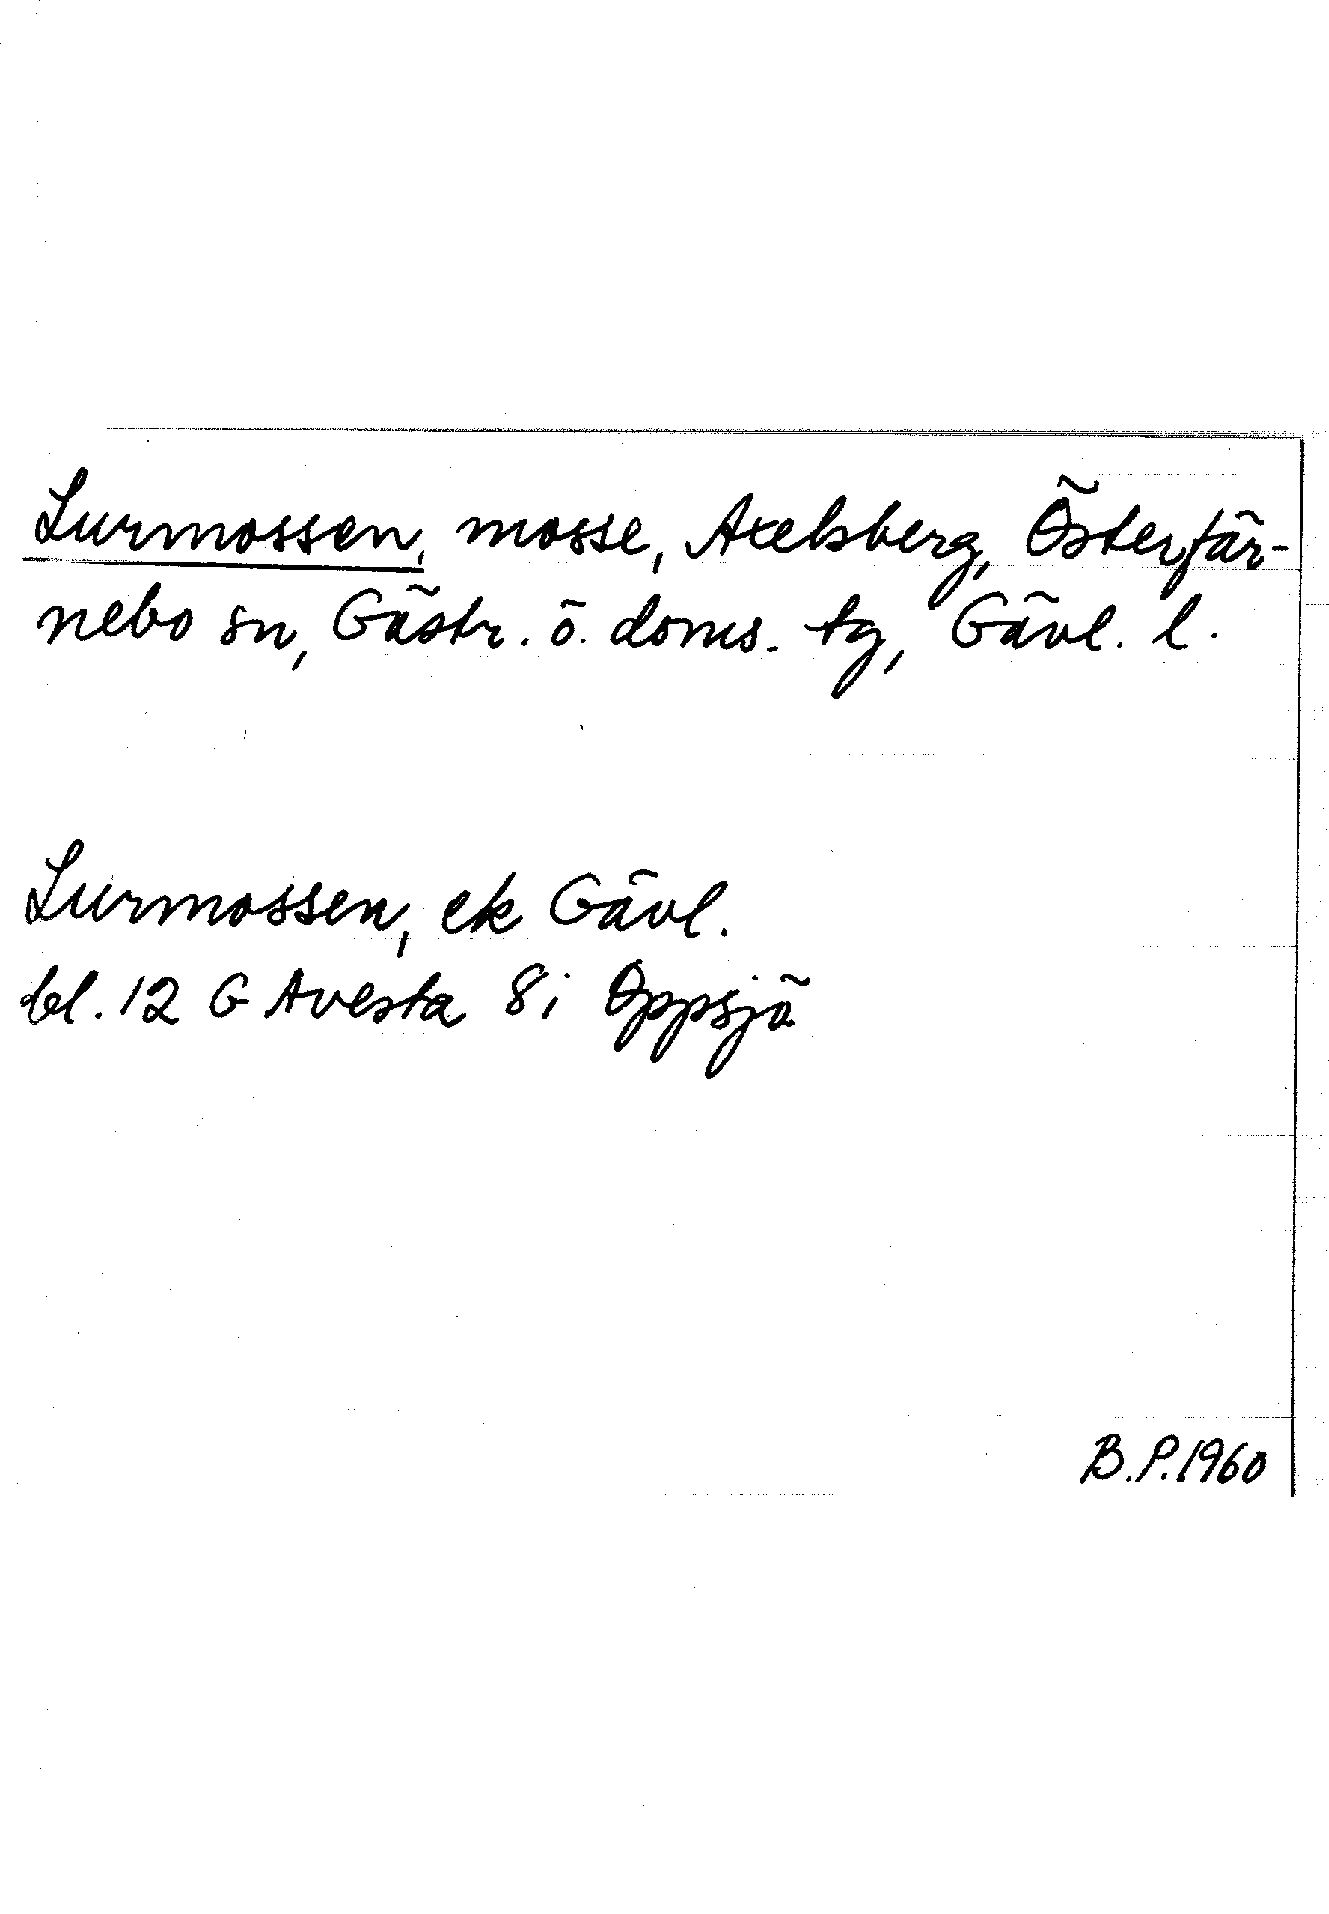 Lurmossen, mosse, Axelsberg, Österfär-
nebo sn, Gästr. ö. doms. tg, Gävl. l.
Lurmossen, ek Gävl.
bl. 12 G Avesta 8 i Oppsjö
B.P. 1960